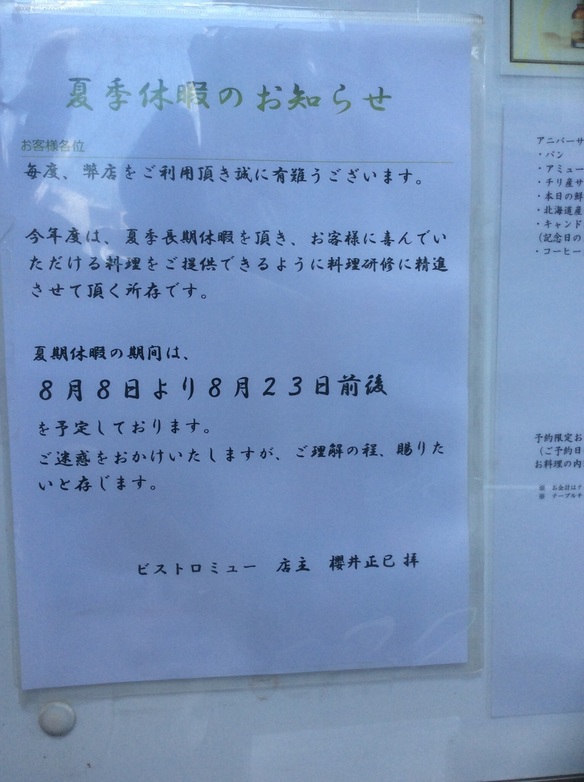 夏季休暇のお知らせ
お客様各位
毎度、弊店をご利用頂き誠に有難うございます。
今年度は、夏季長期休暇を頂き、お客様に喜んでい
ただける料理をご提供できるように料理研修に精進
させて頂く所存です。
夏期休暇の期间は、
８月８日より８月２３日前後
を予定しております。
ご迷惑をおかけいたしますが、ご理解の程、賜りた
いと存じます。
ビストロミュー　店主　櫻井正巳 拝
アニバーサ
・パン
・アミュー
・チリ産サ
・本日の鮮
・北海道産
・キャンド
(記念日の
・コーヒー
予約限定お
(ご予約日
お料理の内
※ お会計は
※ テーブルチ